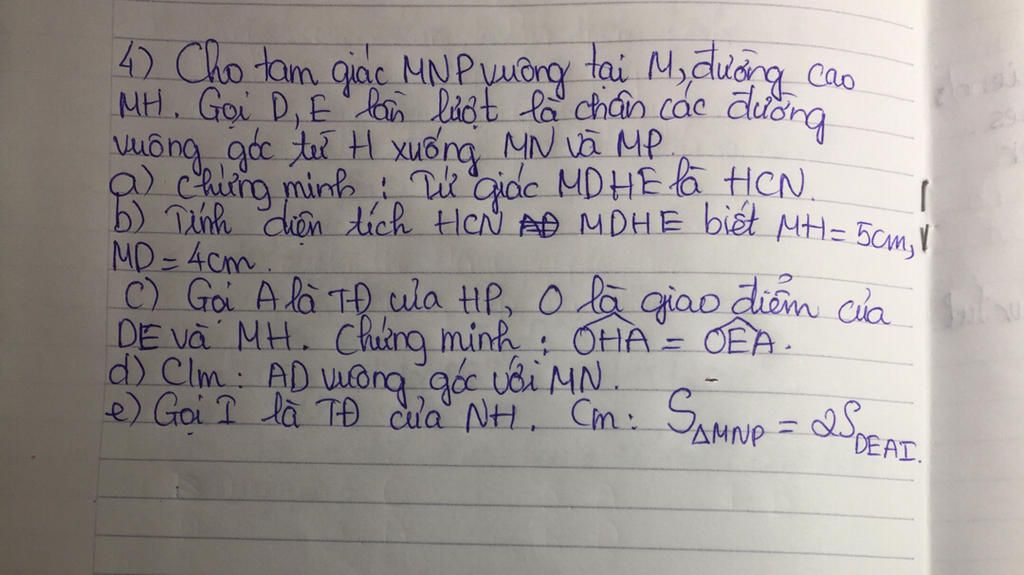 4) Cho tam giác MNP vuông tại M, đường cao
MH. Gọi D, E lần lượt là chân các đường
vuông góc từ H xuống MN và MP.
a) Chứng minh : Tứ giác MDHE là HCN.
b) Tính diện tích HCN MDHE biết MH = 5cm,
MD = 4cm.
c) Gọi A là TĐ của HP, O là giao điểm của
DE và MH. Chứng minh : OHA = OEA.
d) Clm : AD vuông góc với MN.
e) Gọi I là TĐ của NH. Cm : S∆MNP = 2SDEAI.